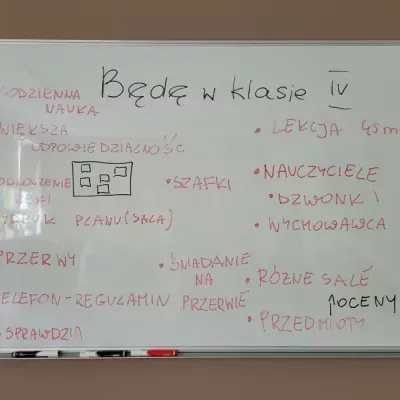 Będę w klasie IV
ODZIENNA
NAUKA
WIĘKSZA
ODPOWIEDZIALNOŚĆ
PLANU (SALA)
PRZERWY
TELEFON - REGULAMIN
SPRAWDZIA
• SZAFKI
• ŚNIADANIE
NA
PRZERWIE
• LEKCJA 45m
• NAUCZYCIELE
• DZWONKI
• WYCHOWAWCA
• RÓŻNE SALE
OCENY
• PRZEDMIOTY